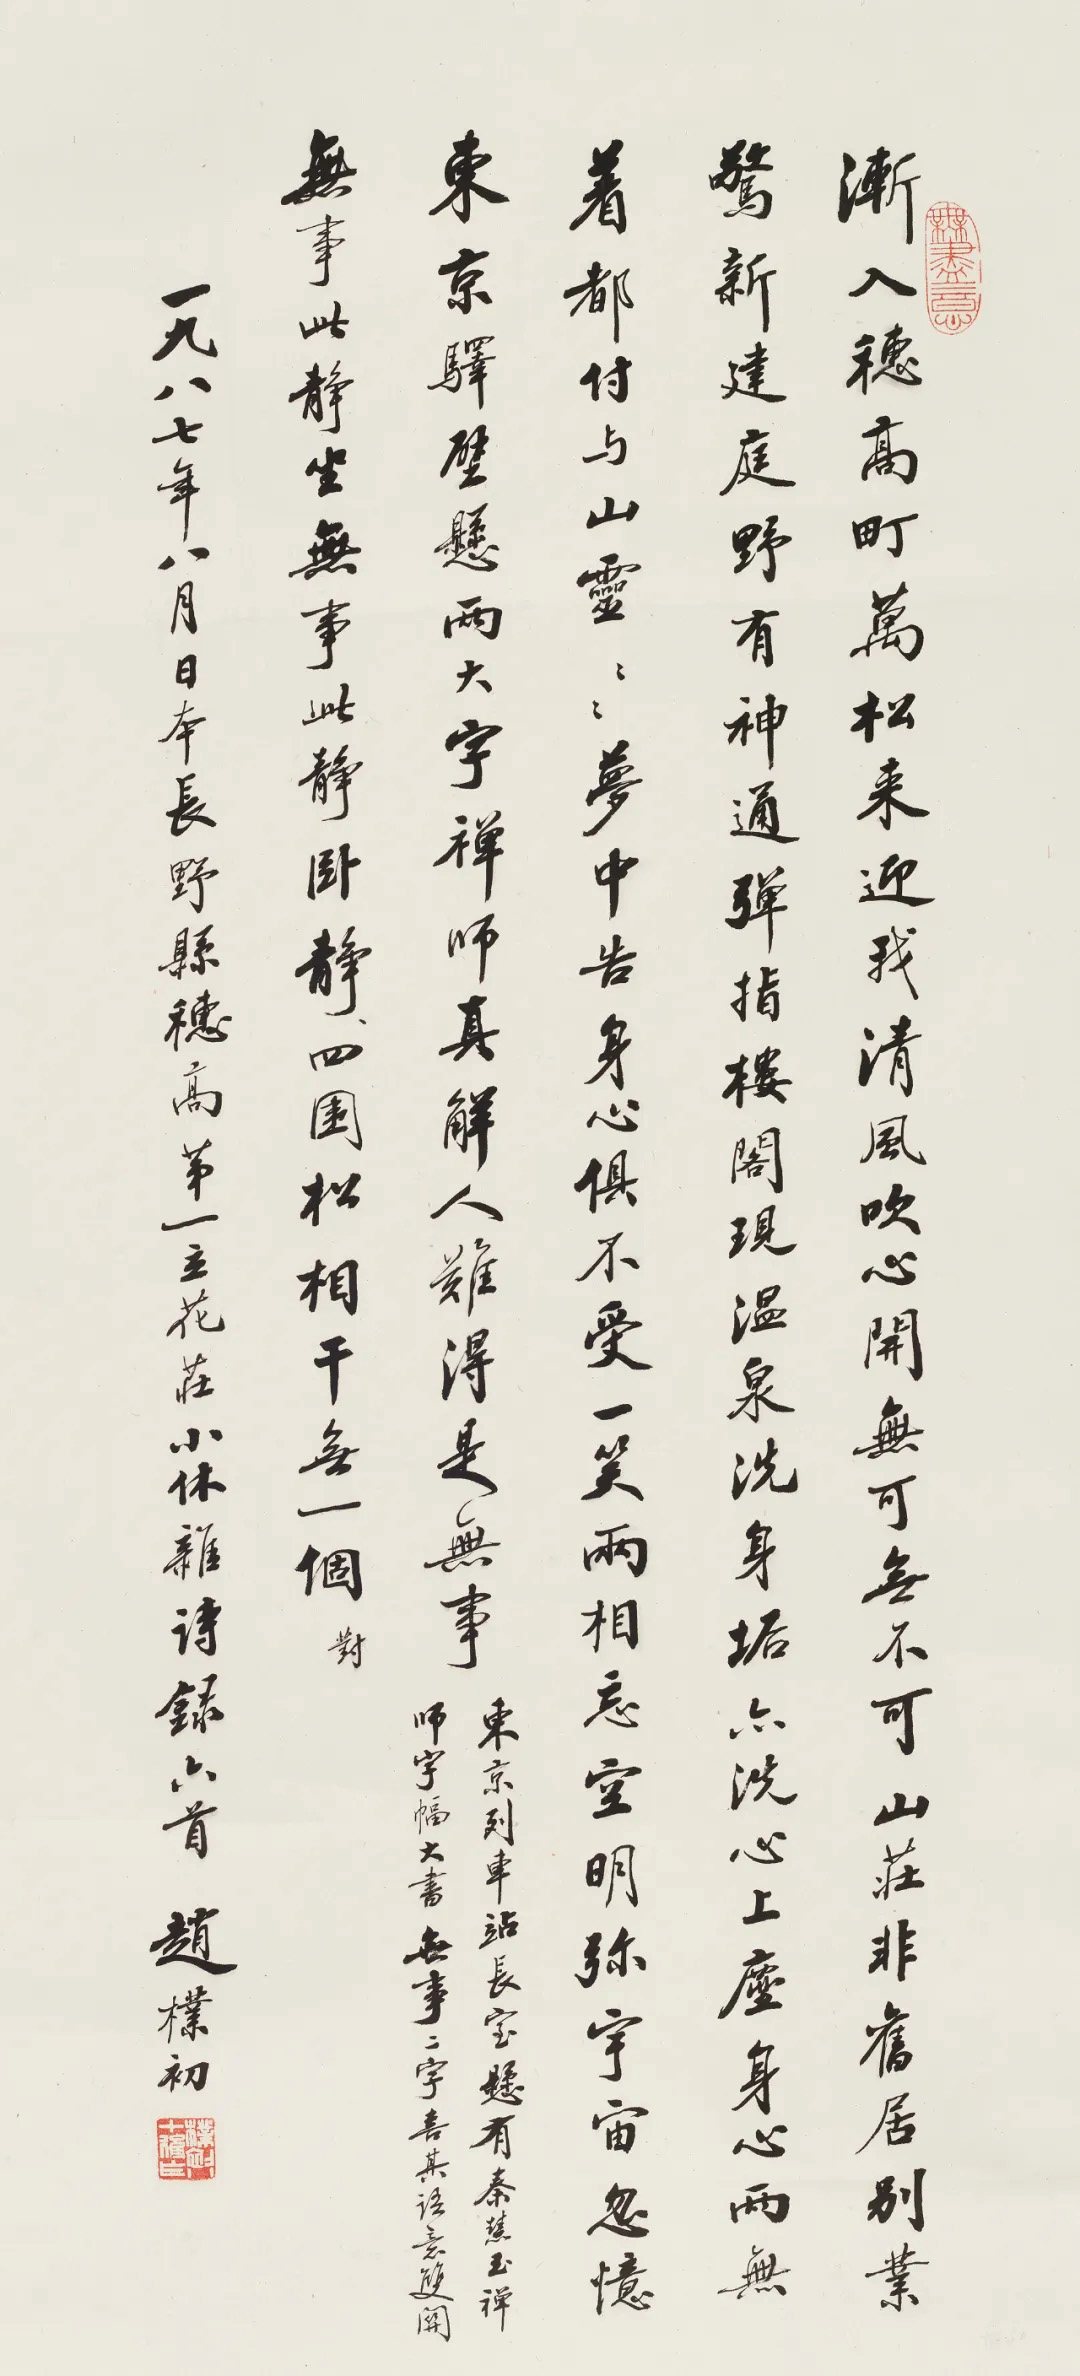 漸入穗高町萬松来迎我清風吹心開無可無不可山莊非舊居別業
驚新建庭野有神通弹指樓閣現温泉洗身垢亦洗心上塵身心兩無
着都付与山靈〻〻夢中告身心俱不受一笑兩相忘空明弥宇宙忽憶
東京驛壁懸兩大字禅师真解人難得是無事
東京列車站長室懸有秦慧玉禅
师字幅大書無事二字喜其语意雙関
無事此静坐無事此静卧静、四圍松相干無一個
對
一九八七年八月日本長野縣穗高第一立花莊小休雜詩録六首 趙樸初
無盡意
樸初